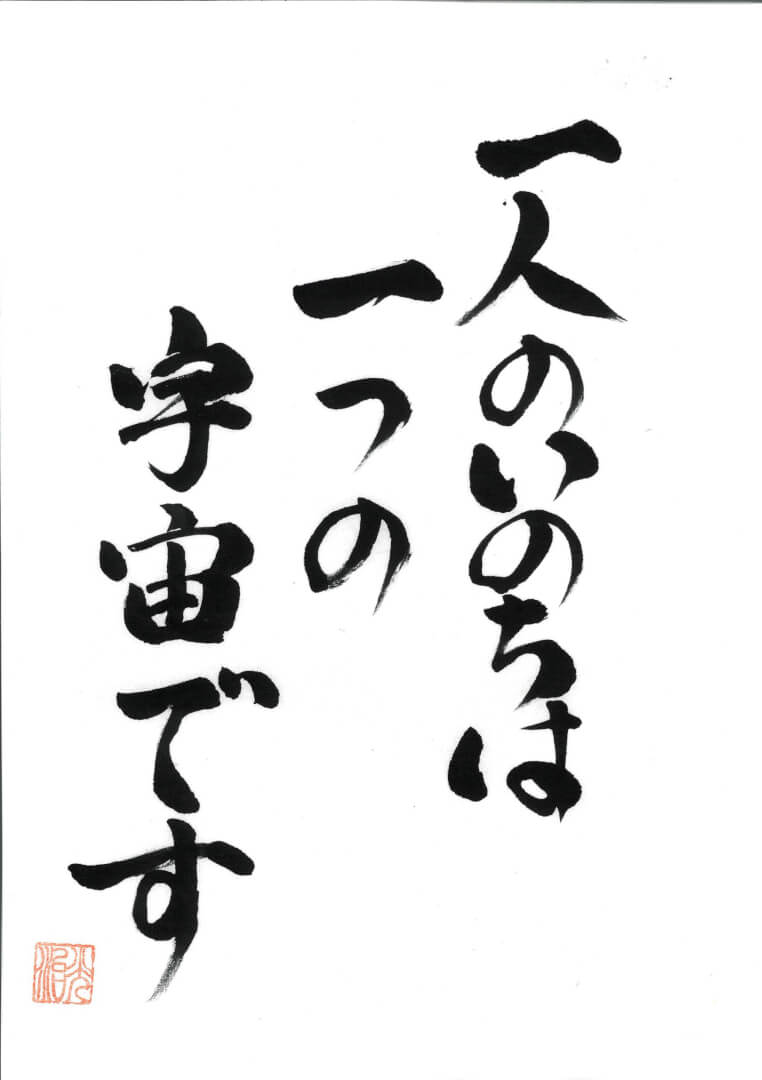 一人のいのちは
一つの
宇宙です